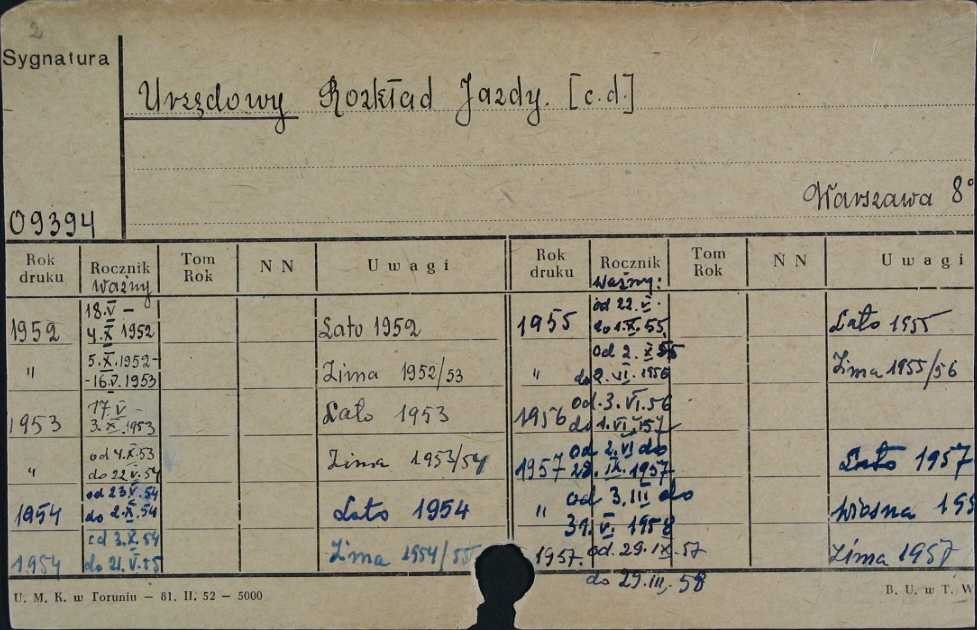 2
Sygnatura
Urzędowy Rozkład Jazdy. [c.d.]
Warszawa 8°
09394
Rok druku
Rocznik
ważny
Tom Rok
N N
Uwagi
1952
18.V –
4.X 1952
Lato 1952
"
5.X.1952-
-16.V.1953
Zima 1952/53
1953
17.V –
3.X.1953
Lato 1953
"
od 4.X.53
do 22.V.54
Zima 1953/54
1954
od 23.V.54
do 2.X.54
Lato 1954
1954
od 3.X.54
do 21.V.55
Zima 1954/55
Rok druku
Rocznik
ważny:
Tom Rok
N N
Uwagi
1955
od 22.V.
do 1.X.55
Lato 1955
"
od 2.X.55
do 2.VI.1956
Zima 1955/56
1956
od 3.VI.56
do 1.VI.157
1957
od 2.VI do
28.IX.1957
Lato 1957
"
od 3.III do
31.V.1958
wiosna 195
1957.
od 29.IX.57
do 29.III.58
Zima 1957
U. M. K. w Toruniu – 81. II. 52 – 5000
B. U. w T. W